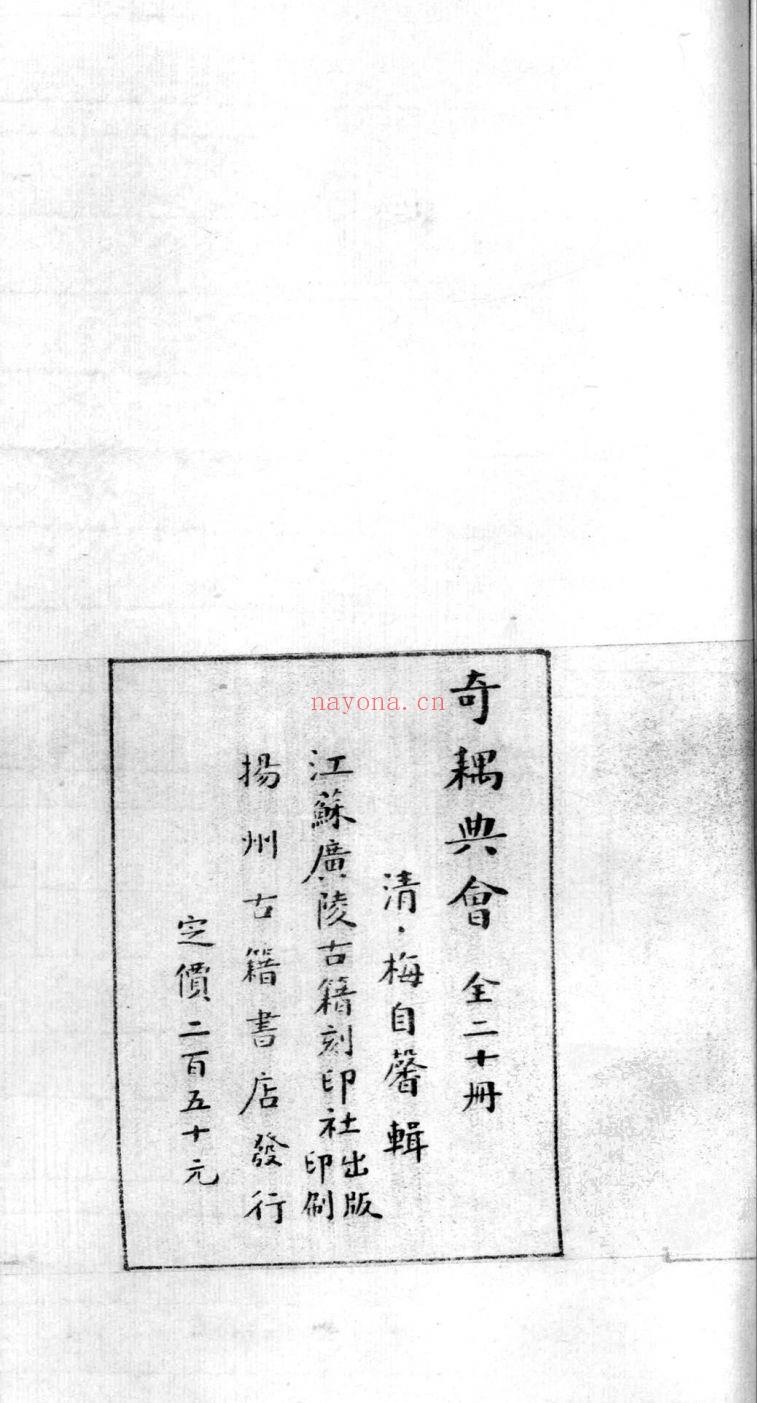 奇耦典會 全二十冊
清·梅自馨輯
江蘇廣陵古籍刻印社出版印刷
揚州古籍書店發行
定價二百五十元
nayona.cn